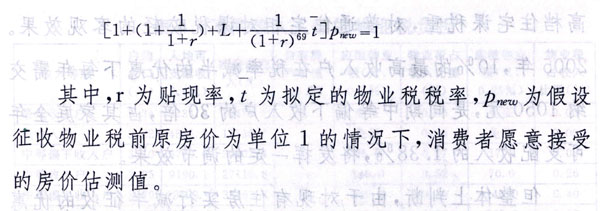 [1+(1+\frac{1}{1+r})+L+\frac{1}{(1+r)^{69}}\bar{t}]p_{new}=1
其中,r 为贴现率,\bar{t} 为拟定的物业税税率,p_{new} 为假设
征收物业税前原房价为单位 1 的情况下,消费者愿意接受
的房价估测值。